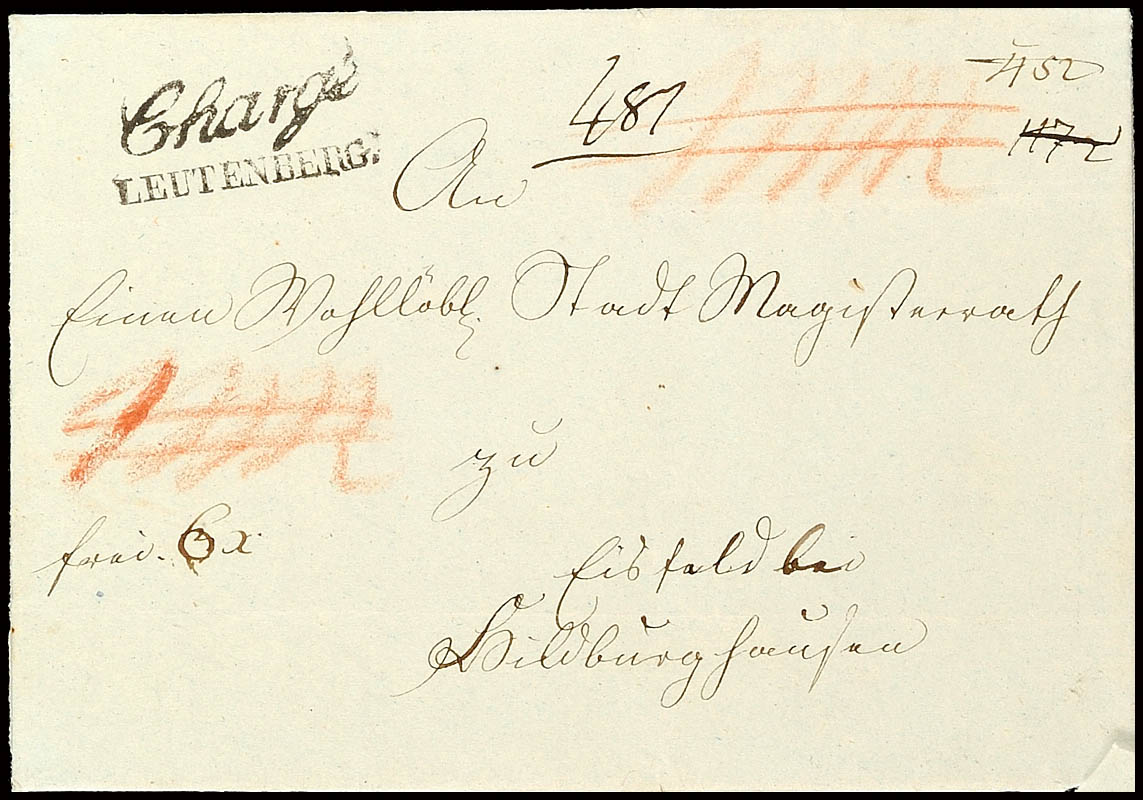 Chargé
LEUTENBERG.
481
452
1172
An
Einen Wohllöbl. Stadt Magisterrath
zu
frei. 6x
Eisfeld bei
Hildburghausen